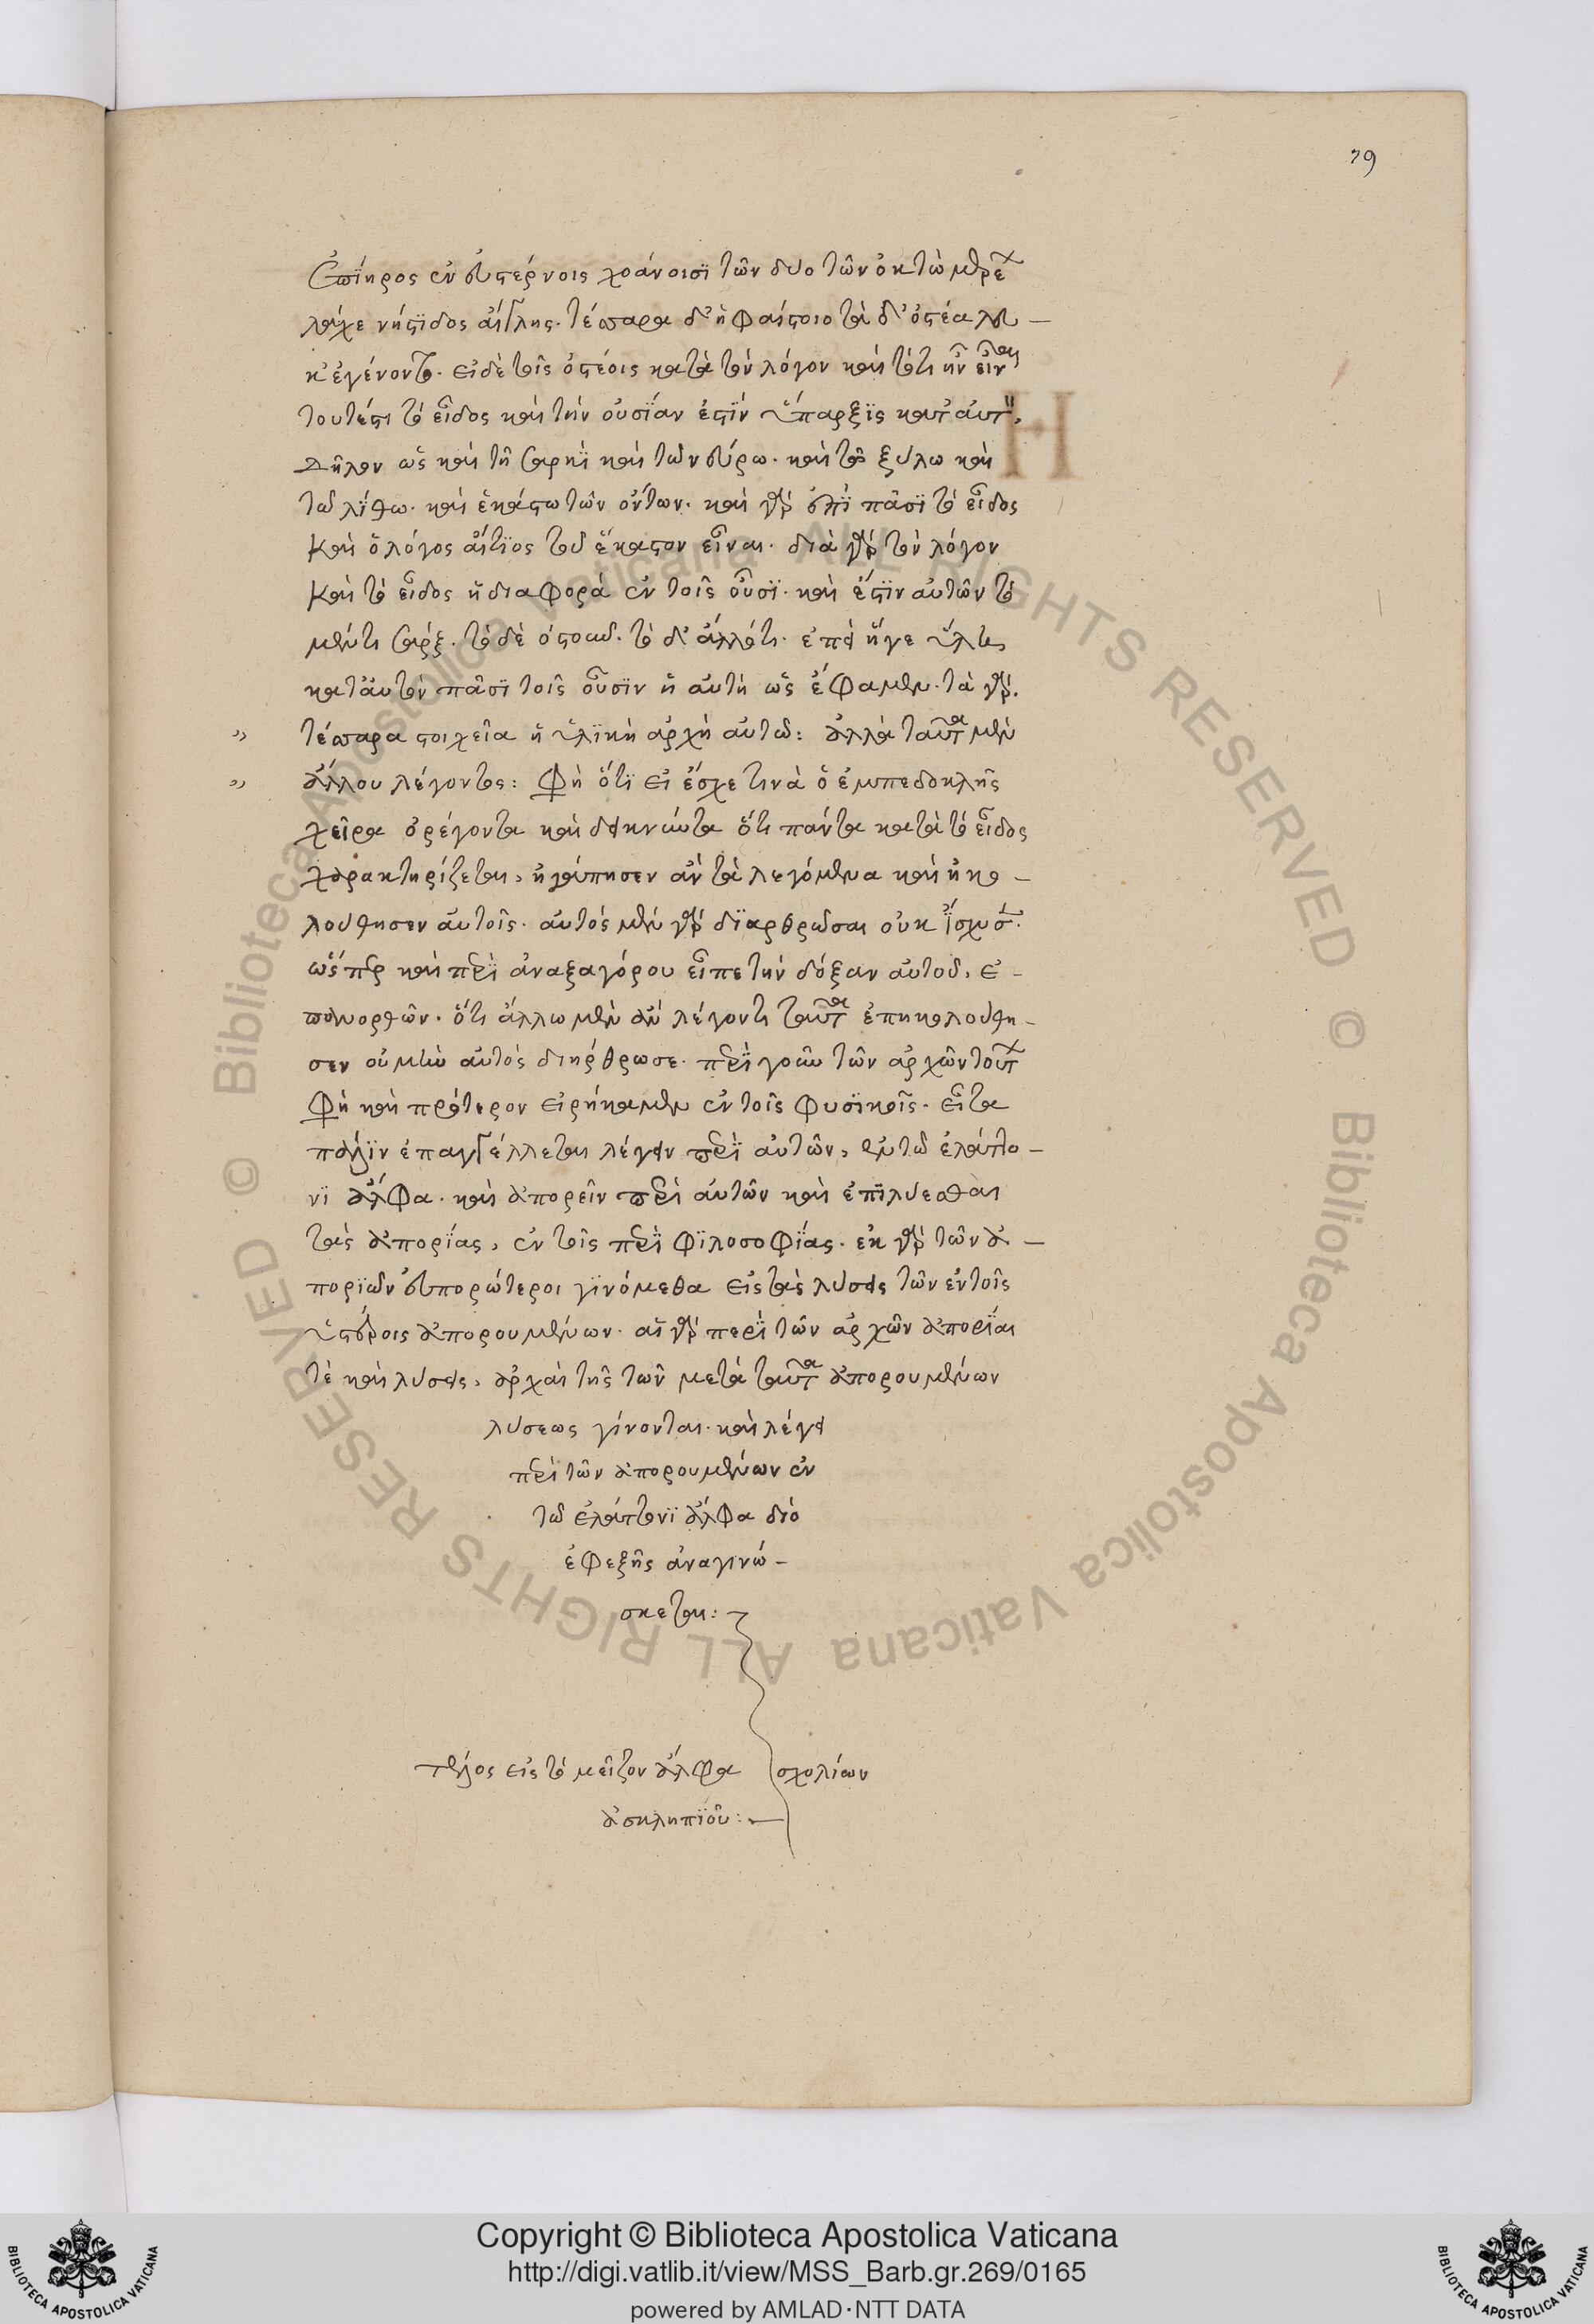 79
ἐπίηρος ἐν εὐστέρνοις χοάνοισϊ τῶν δύο τῶν ὀκτὼ μερέων
λάχε νήστϊδος αἴγλης. τέσσαρα δ' ἡφαίστοιο τὰ δ' ὀστέα λευ-
κ' ἐγένοντο. εἰ δὲ τοῖς ὀστέοις κατὰ τὸν λόγον καὶ τὸ τί ἦν εἶναι
τουτέστι τὸ εἶδος καὶ τὴν οὐσΐαν ἐστϊν ὕπαρξϊς κατ' αὐτὴν.
Δῆλον ὡς καὶ τῆ σαρκϊ καὶ τῶ νεύρω. καὶ τῶ ξύλω καὶ
τῶ λΐθω. καὶ ἑκάστω τῶν ὄντων. καὶ γὰρ ἐπϊ πᾶσϊ τὸ εἶδος
καὶ ὁ λόγος αἴτϊος τοῦ ἕκαστον εἶναι. διὰ γὰρ τὸν λόγον
καὶ τὸ εἶδος ἡ διαφορὰ ἐν τοῖς οὖσϊ. καὶ ἔστϊν αὐτῶν τὸ
μέν τι σάρξ. τὸ δὲ ὀστοῦν. τὸ δ' ἄλλό τι. ἐπεὶ ἥγε ὕλη
κατ' αὐτὸν πᾶσϊ τοῖς οὖσϊν ἡ αὐτὴ ὡς ἔφαμεν. τὰ γὰρ
τέσσαρα στοιχεῖα ἡ ὑλϊκὴ ἀρχὴ αὐτῶ: ἀλλὰ ταῦτα μὲν
ἄλλου λέγοντος: Φὴ ὅτϊ εἰ ἔσχε τινὰ ὁ ἐμπεδοκλῆς
χεῖρα ὀρέγοντα καὶ δεικνύντα ὅτι πάντα κατὰ τὸ εἶδος
χαρακτηρίζεται, ἠγάπησεν ἂν τὰ λεγόμενα καὶ ἠκο-
λούθησεν αὐτοῖς. αὐτὸς μὲν γὰρ δϊαρθρῶσαι οὐκ ἴσχυσε.
ὥσπερ καὶ περϊ ἀναξαγόρου εἶπε τὴν δόξαν αὐτοῦ, ἐ-
πανορθῶν. ὅτι ἄλλω μὲν ἂν λέγοντι ταῦτα ἐπηκολούθη-
σεν οὐ μὴν αὐτὸς διήρθρωσε. περϊ γοῦν τῶν ἀρχῶν τούτων
Φὴ καὶ πρότερον εἰρήκαμεν ἐν τοῖς φυσϊκοῖς. εἶτα
πάλϊν ἐπαγγέλλεται λέγειν περϊ αὐτῶν, ἐν τῶ ἐλάττο-
νϊ ἄλφα. καὶ ἀπορεῖν περὶ αὐτῶν καὶ ἐπϊλύεσθαι
τὰς ἀπορίας, ἐν τοῖς περϊ φϊλοσοφΐας. ἐκ γὰρ τῶν ἀ-
πορϊῶν εὐπορώτεροι γϊνόμεθα εἰς τὰς λύσεις τῶν ἐν τοῖς
ὑστέροις ἀπορουμένων. αἱ γὰρ περϊ τῶν ἀρχῶν ἀπορΐαι
τὲ καὶ λύσεις, ἀρχαὶ τῆς τῶν μετὰ ταῦτα ἀπορουμένων
λύσεως γίνονται. καὶ λέγει
περὶ τῶν ἀπορουμένων ἐν
τῶ ἐλάττονϊ ἄλφα διὸ
ἐφεξῆς ἀναγινώ-
σκεται:
τέλος εἰς τὸ μεῖζον ἄλφα σχολίων
ἀσκληπϊοῦ:
© Biblioteca Apostolica Vaticana ALL RIGHTS RESERVED © Biblioteca Apostolica Vaticana ALL RIGHTS RESERVED
Copyright © Biblioteca Apostolica Vaticana
http://digi.vatlib.it/view/MSS_Barb.gr.269/0165
powered by AMLAD·NTT DATA
BIBLIOTECA APOSTOLICA VATICANA
BIBLIOTECA APOSTOLICA VATICANA